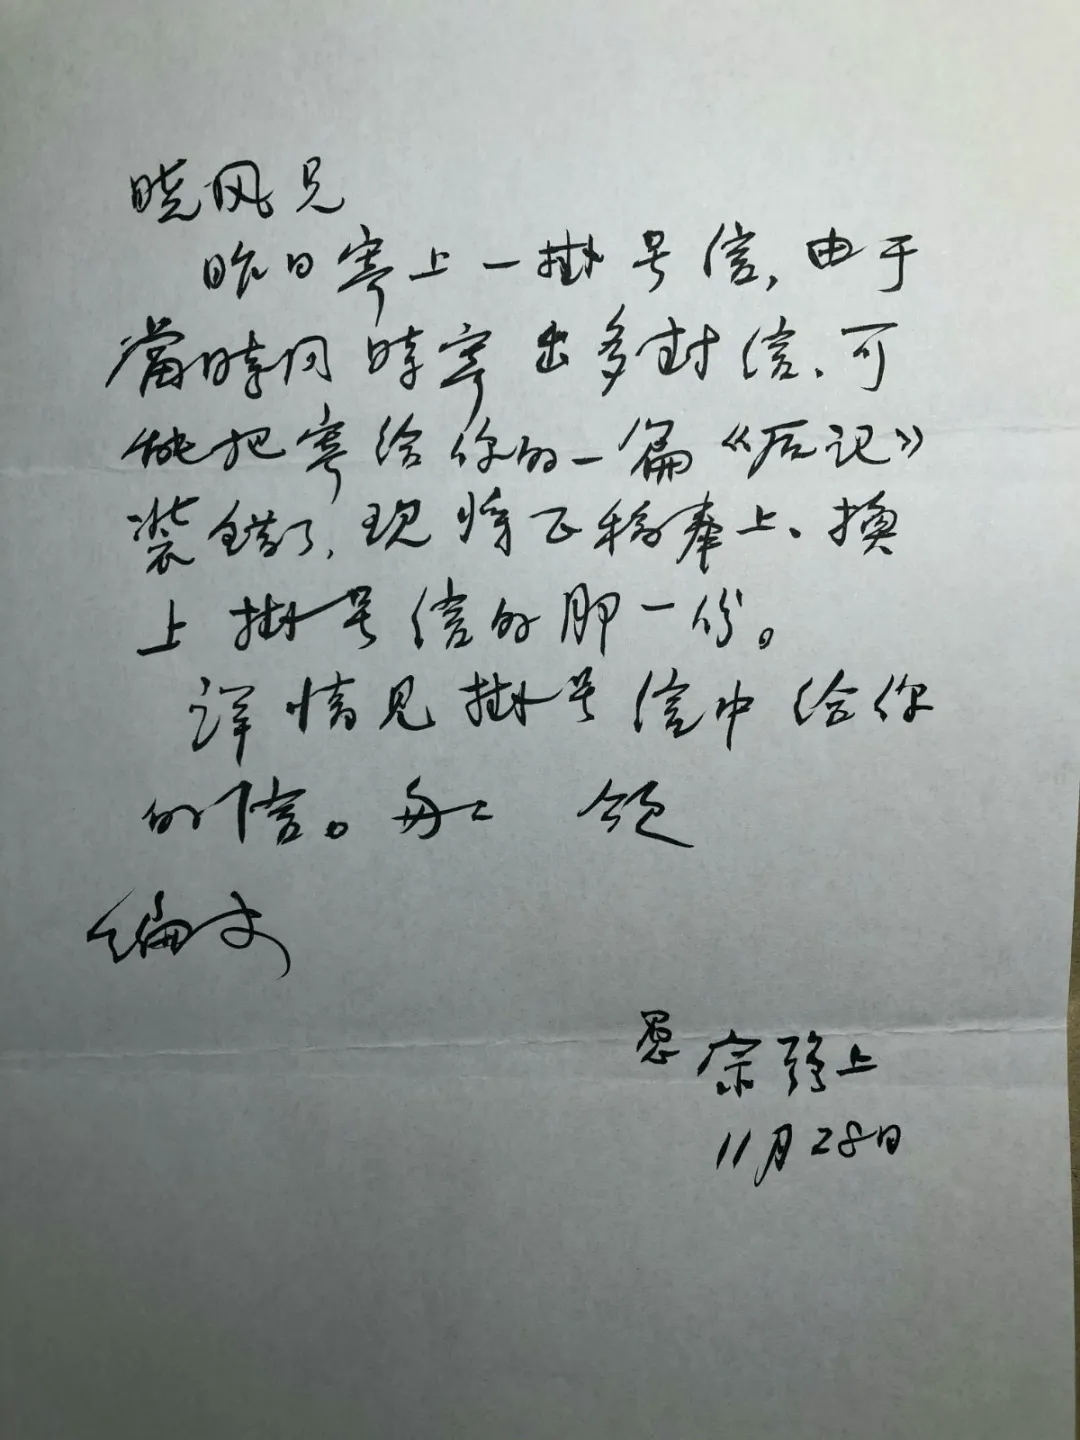 晓风兄
昨日寄上一掛号信,由于
當時同時寄出多封信、可
能把寄给你的一篇《后记》
装錯了,现將正稿奉上、换
上掛号信的那一份。
详情见掛号信中给你
的信。匆匆 即颂
编安
愚宗强上
11月28日